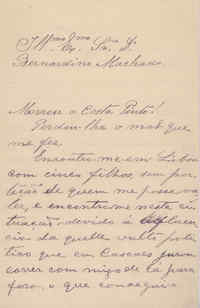 Illmo Exmo Snr Dr
Bernardino Machado

Morreu o Costa Pinto!
Perdou-lhe o mal que
me fez.
Encontro-me em Lisboa
com cinco filhos, sem pro-
tecção de quem me possa va-
ler, e encontro-me nesta si-
tuação devido á influen-
cia da quelle vulto poli-
tico que em Cascaes jurou
correr com migo de lá para
fora, o que conseguiu